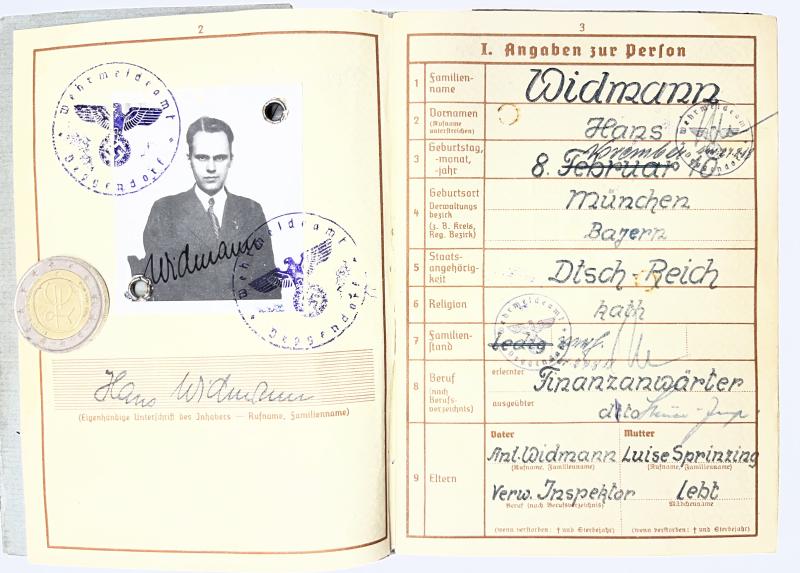 2
Wehrmeldeamt
Deggendorf
Widmann
Wehrmeldeamt
Deggendorf
Hans Widmann
(Eigenhändige Unterschrift des Inhabers — Rufname, Familienname)
3
I. Angaben zur Person
1 Familien-
name
Widmann
2 Vornamen
(Rufname
unterstreichen)
Hans
Wehrmeldeamt
3 Geburtstag,
-monat,
-jahr
November
8. Februar 10
4 Geburtsort
Verwaltungs
bezirk
(z. B. Kreis,
Reg. Bezirk)
München
Bayern
5 Staats-
angehörig-
keit
Dtsch-Reich
6 Religion
kath
Wehrmeldeamt
Deggendorf
7 Familien-
stand
ledig verh.
8 Beruf
(nach
Berufs-
verzeichnis)
erlernter
Finanzanwärter
ausgeübter
dito
9 Eltern
Vater Mutter
Ant. Widmann Luise Sprinzing
(Rufname, Familienname) (Rufname, Familienname)
Verw. Inspektor lebt
Beruf (nach Berufsverzeichnis) Mädchenname
(wenn verstorben: † und Sterbejahr) (wenn verstorben: † und Sterbejahr)